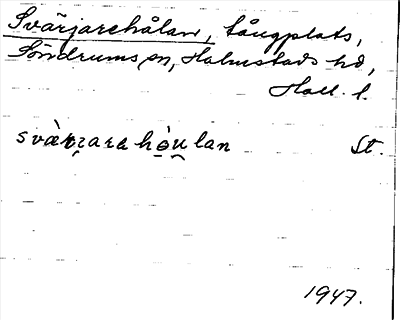 Svärjarehålan, tångplats,
Söndrums sn, Halmstads hd,
Hall. l.
svæ̀rɀarahòu̯lan St.
1947.